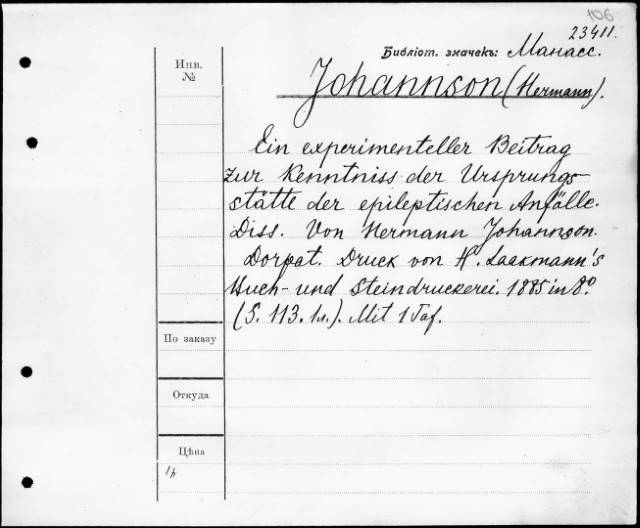 106
23411.
Библіот. значекъ: Манасс.
Инв.
№
Johannson (Hermann).
Ein experimenteller Beitrag
zur Kenntniss der Ursprungs-
stätte der epileptischen Anfälle.
Diss. Von Hermann Johannson.
Dorpat. Druck von H. Laakmann's
Buch- und Steindruckerei. 1885 in 8º
(S. 113. 1л.). Mit 1 Taf.
По заказу
Откуда
Цѣна
1р